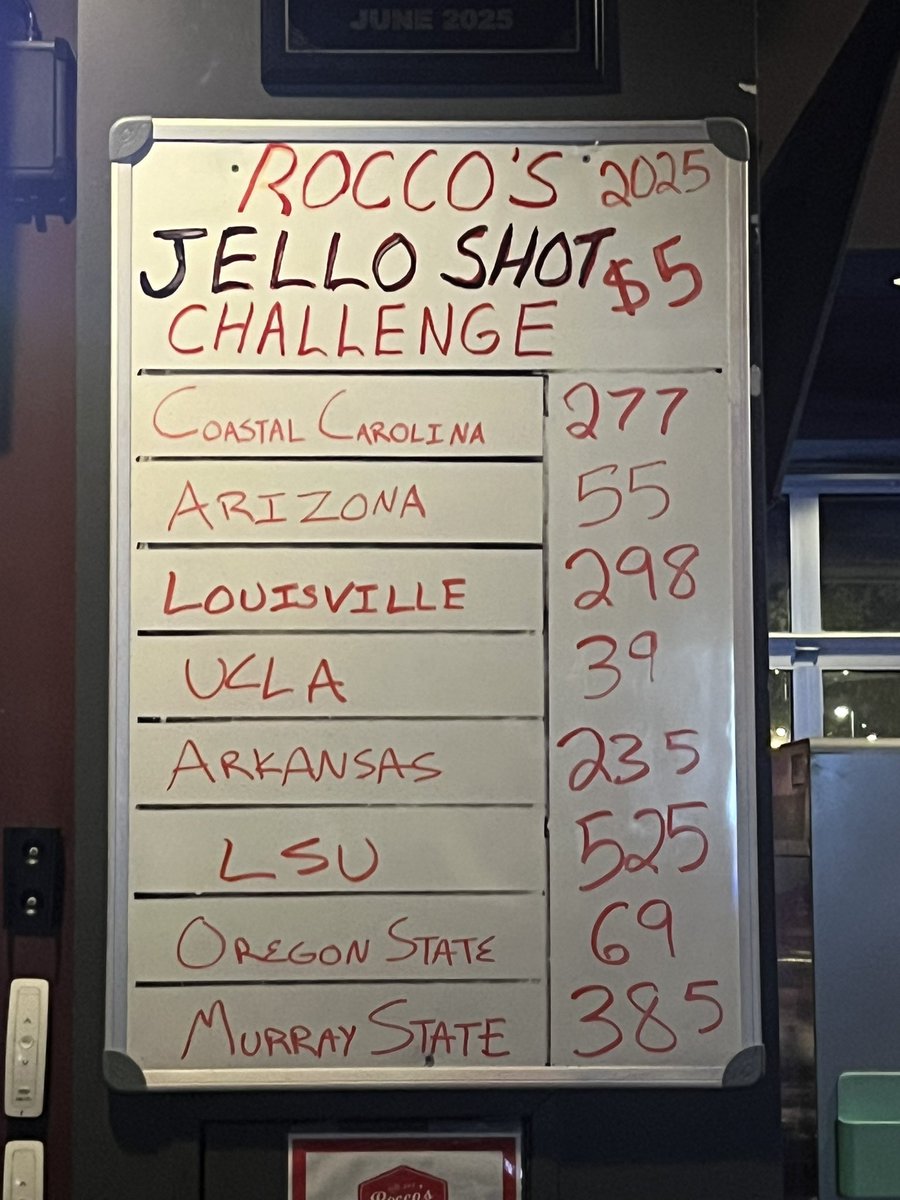 JUNE 2025
ROCCO'S 2025
JELLO SHOT $5
CHALLENGE
COASTAL CAROLINA 277
ARIZONA 55
LOUISVILLE 298
UCLA 39
ARKANSAS 235
LSU 525
OREGON STATE 69
MURRAY STATE 385
Rocco's